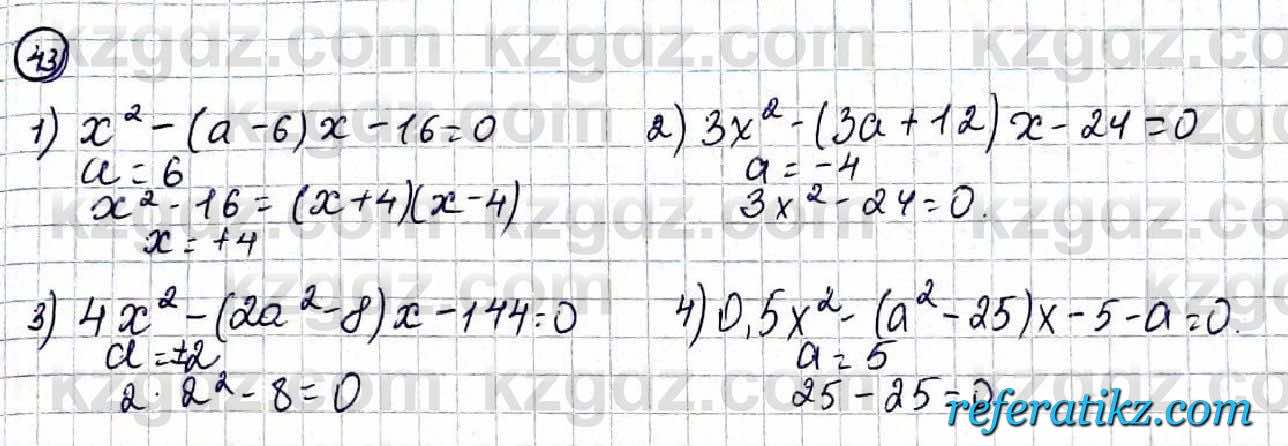 43
1) x² - (a - 6)x - 16 = 0
a = 6
x² - 16 = (x + 4)(x - 4)
x = ±4
2) 3x² - (3a + 12)x - 24 = 0
a = -4
3x² - 24 = 0.
3) 4x² - (2a² - 8)x - 144 = 0
a = ±2
2 · 2² - 8 = 0
4) 0,5x² - (a² - 25)x - 5 - a = 0.
a = 5
25 - 25 = 0
referatikz.com
kzgdz.com